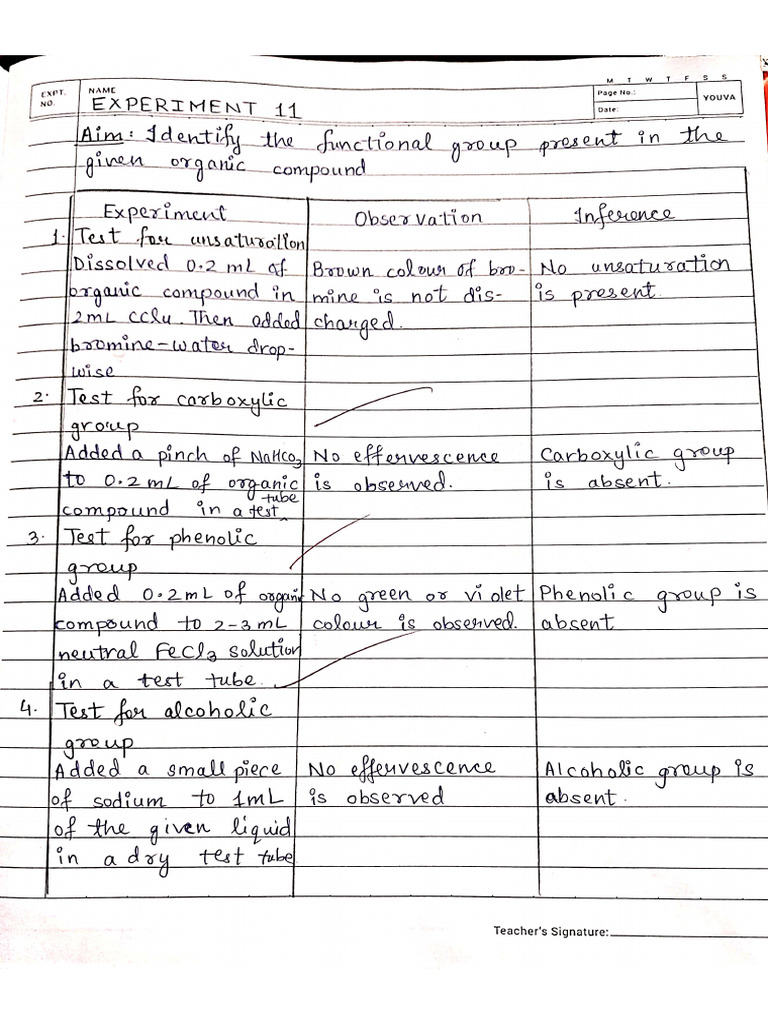 M T W T F S S
EXPT. NO.
NAME
Page No.:
Date:
YOUVA
EXPERIMENT 11
Aim: Identify the functional group present in the
given organic compound
Experiment Observation Inference
1. Test for unsaturation
Dissolved 0.2 mL of Brown colour of bro- No unsaturation
organic compound in mine is not dis- is present.
2mL CCl4. Then added charged.
bromine-water drop-
wise
2. Test for carboxylic
group
Added a pinch of NaHCO3 No effervescence Carboxylic group
to 0.2 mL of organic is observed. is absent.
compound in a test tube
3. Test for phenolic
group
Added 0.2mL of organic No green or violet Phenolic group is
compound to 2-3 mL colour is observed. absent
neutral FeCl3 solution
in a test tube.
4. Test for alcoholic
group
Added a small piece No effervescence Alcoholic group is
of sodium to 1mL is observed absent.
of the given liquid
in a dry test tube
Teacher's Signature: